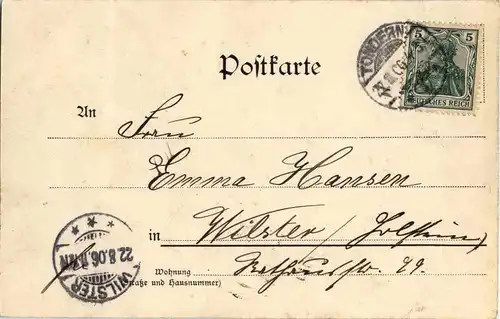 TONDERN
5 5
DEUTSCHES REICH
Postkarte
An Frau
Emma Hansen
in Wilster (Holstein)
Wohnung Rathausstr. 29.
(Straße und Hausnummer)
WILSTER
22.8.06.